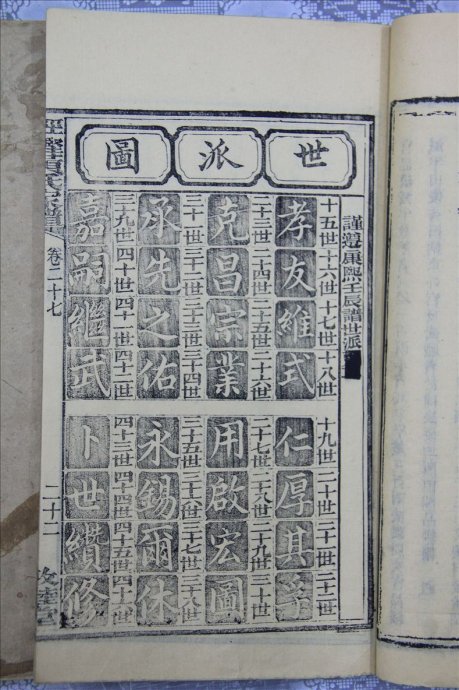 世派圖
謹遵康熙壬辰譜世派
十五世十六世十七世十八世
孝友維式
十九世二十世二十一世二十二世
仁厚其
二十三世二十四世二十五世二十六世
克昌宗業
二十七世二十八世二十九世三十世
用啟宏圖
三十一世三十二世三十三世三十四世
承先之佑
三十五世三十六世三十七世三十八世
永錫爾休
三九世四十世四十一世四十二世
嘉嗣繼武
四十三世四十四世四十五世四十六世
卜世纘修
卷二十七
二十二